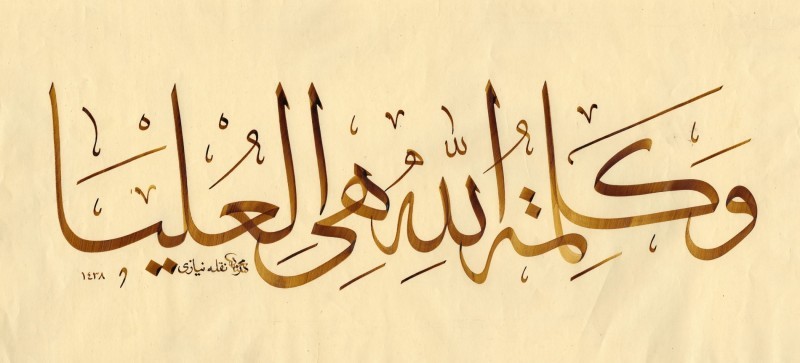 وَكَلِمَةُ اللّٰهِ هِيَ الْعُلْيَا
نقله نيازى
١٤٣٨